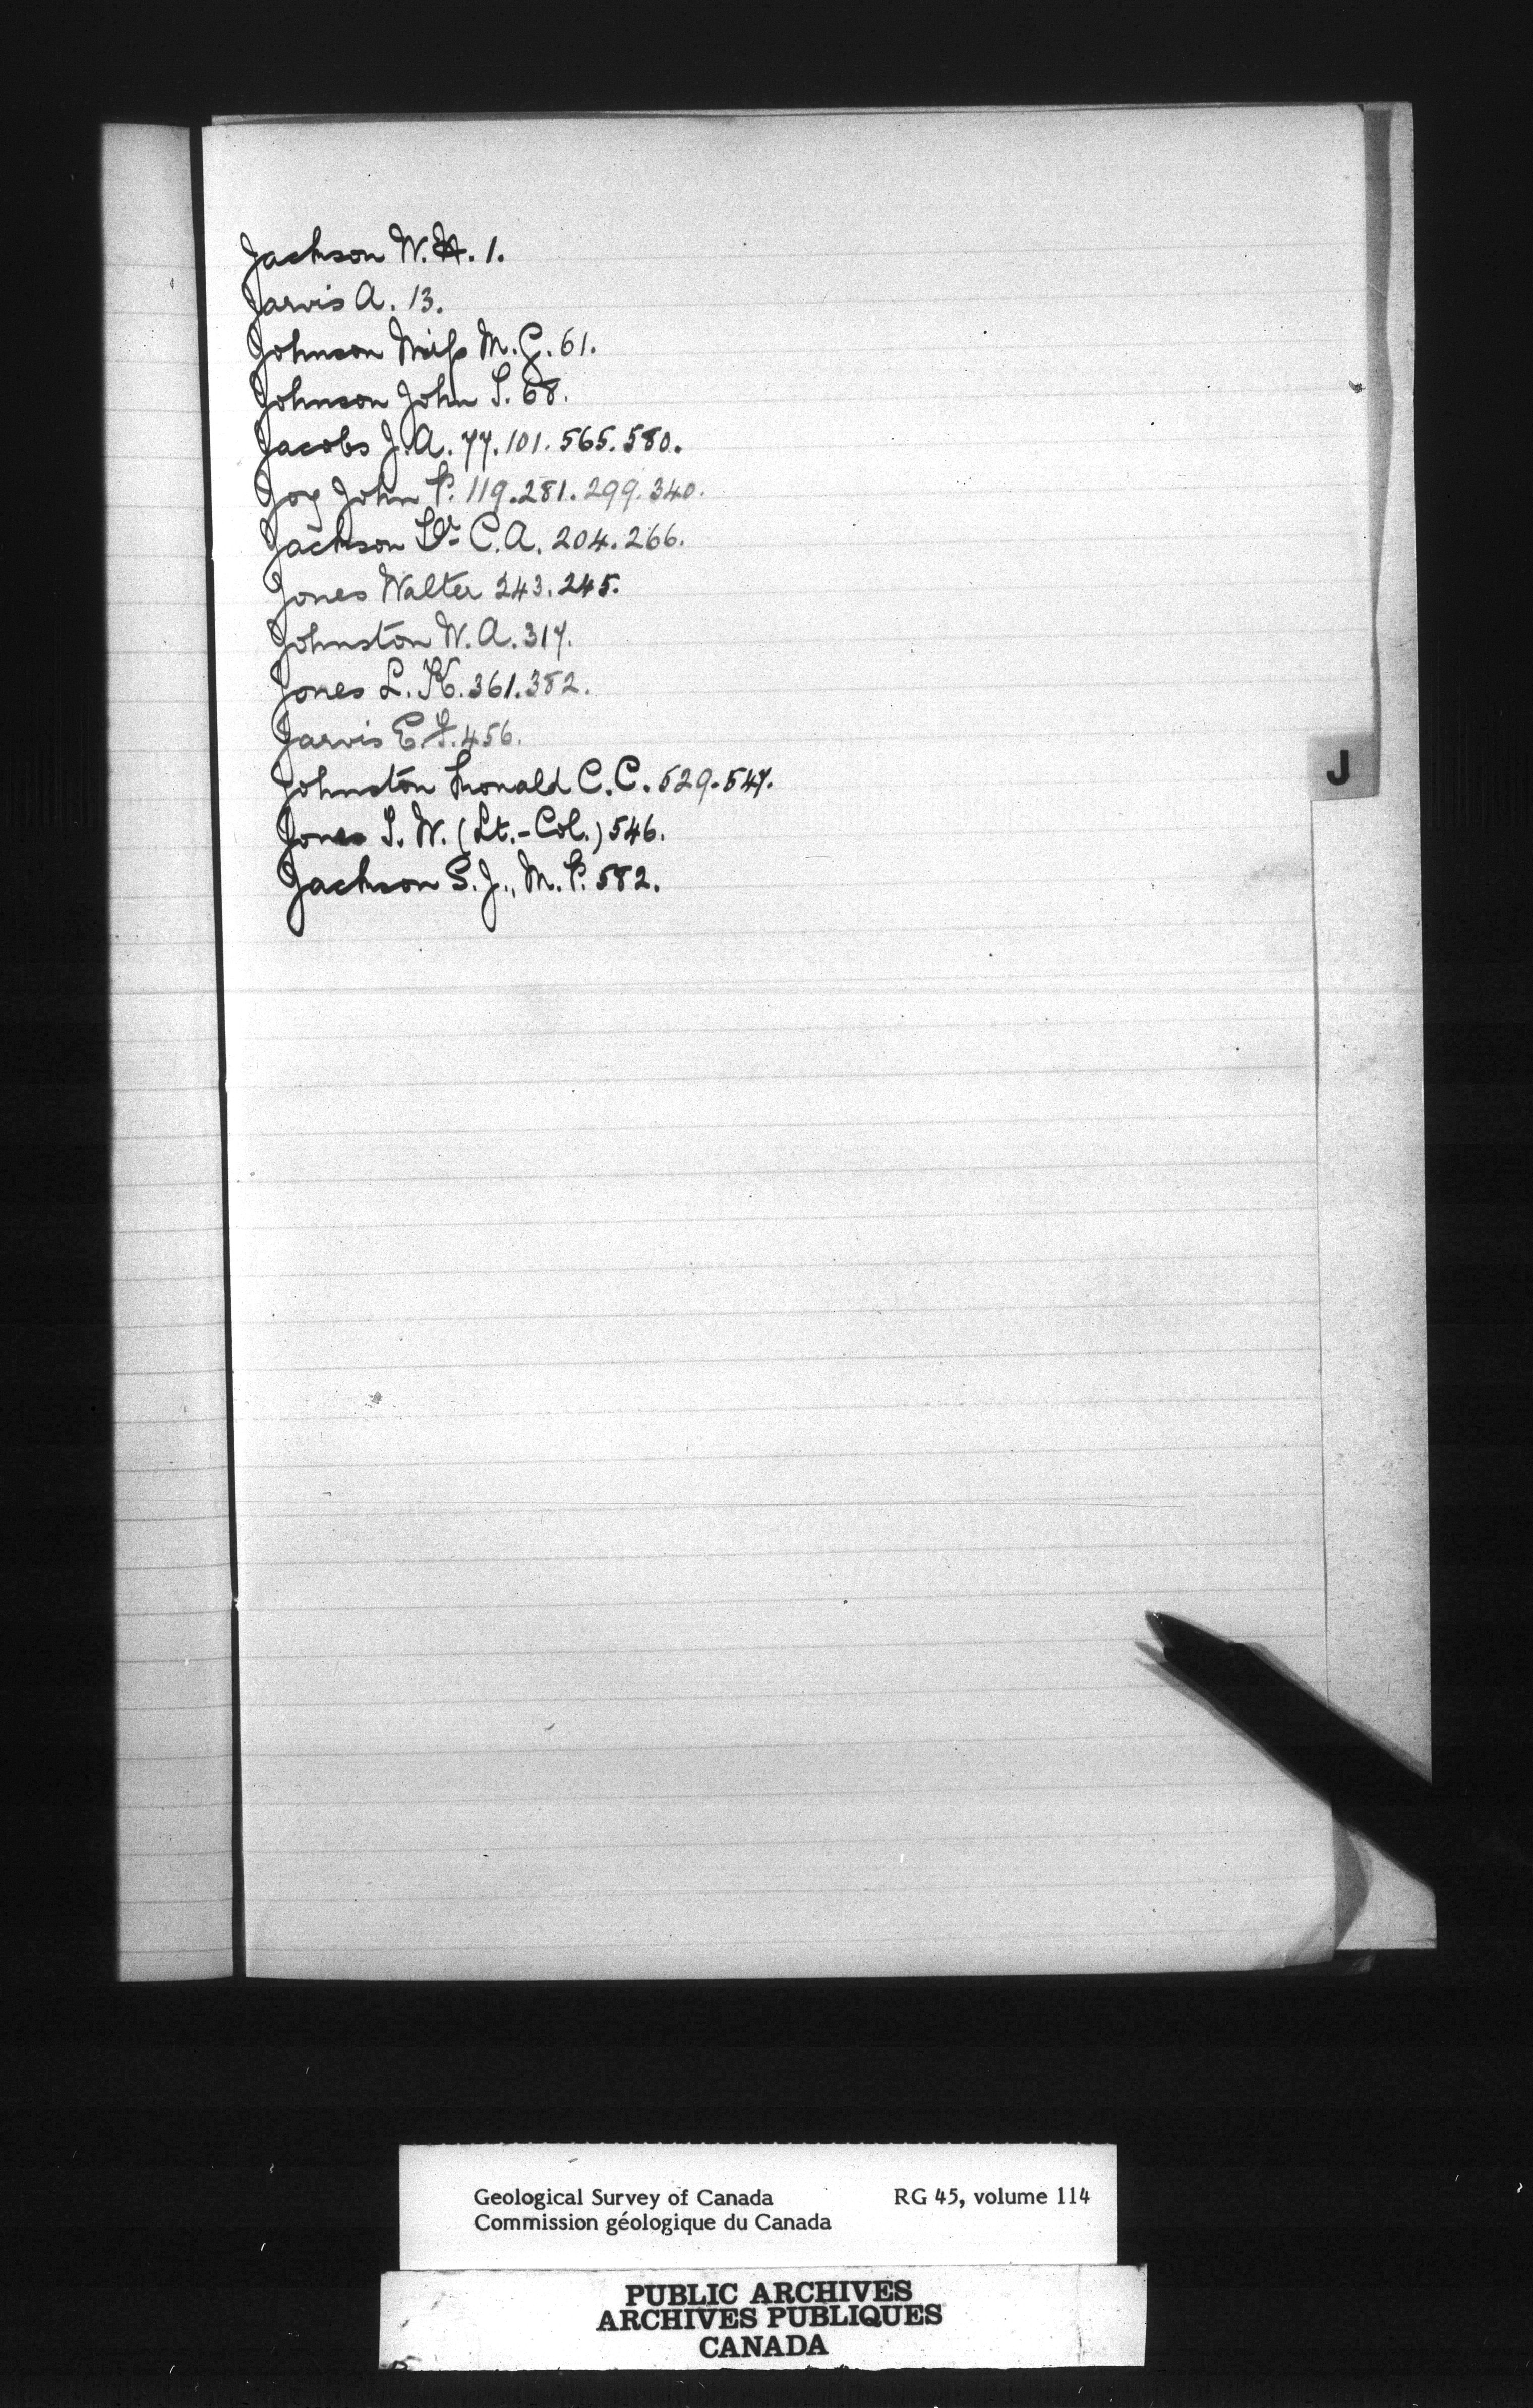 Jackson W. H. 1.
Jarvis A. 13.
Johnson Miss M. G. 61.
Johnson John S. 68.
Jacobs J. A. 77. 101. 565. 580.
Joy John P. 119. 281. 299. 340.
Jackson Dr. C. A. 204. 266.
Jones Walter 243. 245.
Johnston W. A. 317.
Jones L. K. 361. 382.
Jarvis E. S. 456.
Johnston Donald C. C. 529. 547.
J
Jones S. W. (Lt.-Col.) 546.
Jackson S. J., M. P. 582.
Geological Survey of Canada RG 45, volume 114
Commission géologique du Canada
PUBLIC ARCHIVES
ARCHIVES PUBLIQUES
CANADA